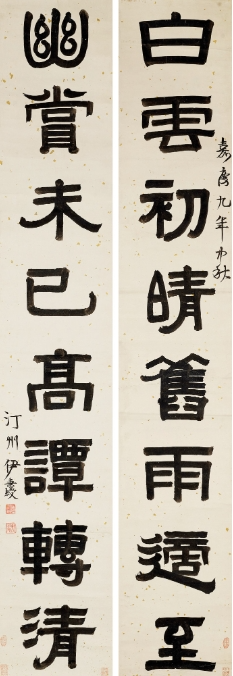 白雲初晴舊雨適至
嘉慶九年中秋
幽賞未已髙譚轉清
汀州伊秉綬